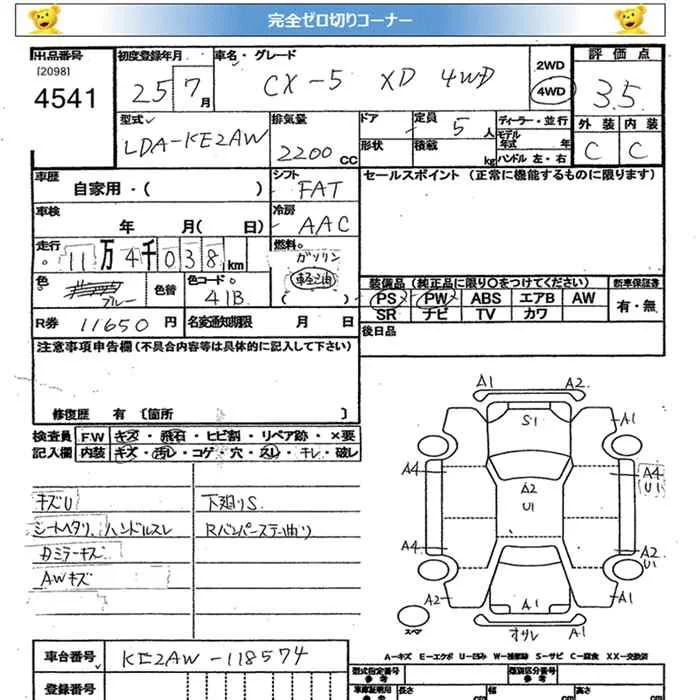 完全ゼロ切りコーナー
出品番号
[2098]
4541
初度登録年月
25 7月
車名・グレード
CX-5 XD 4WD
2WD
4WD
評価点
3.5
外装 内装
C C
型式
LDA-KE2AW
排気量
2200cc
ドア
形状
定員
5人
積載
kg
ディーラー・並行
モデル年式 年
ハンドル 左・右
車歴
自家用・( )
シフト
FAT
セールスポイント (正常に機能するものに限ります)
車検
年 月( 日)
冷房
AAC
走行
11万4千038km
燃料
ガソリン
軽油
( )
色
ブルー
色替
色コード
41B
装備品(純正品に限り○をつけてください)
新車保証書
PS PW ABS エアB AW
SR ナビ TV カワ
有・無
R券 11650円
名変通知期限 月 日
後日品
注意事項申告欄(不具合内容等は具体的に記入して下さい)
修復歴 有 [箇所 ]
検査員
記入欄
FW キズ・飛石・ヒビ割・リペア跡・×要
内装 キズ・汚レ・コゲ・穴・スレ・ナレ・破レ
キズU
シートヘタリ、ハンドルスレ
カミラーキズ
AWキズ
下廻りS
Rバンパーステー曲り
A1 A2
S1
A1
A4
A2
U1
A4
U1
A4
A2
U1
A2
A1
A1
スペア
オサレ
A1
A-キズ E-エクボ U-凹み W-補修跡 S-サビ C-腐食 XX-交換済
車台番号
KE2AW-118574
登録番号
型式指定番号
参考
類別区分番号
参考
車庫証明用
参考
長さ
cm
幅
cm
高さ
cm